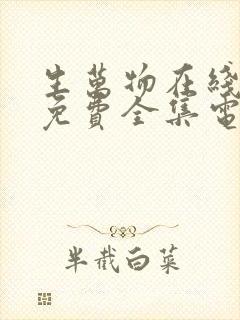 生萬物在綫
免費全集電
半截白菜